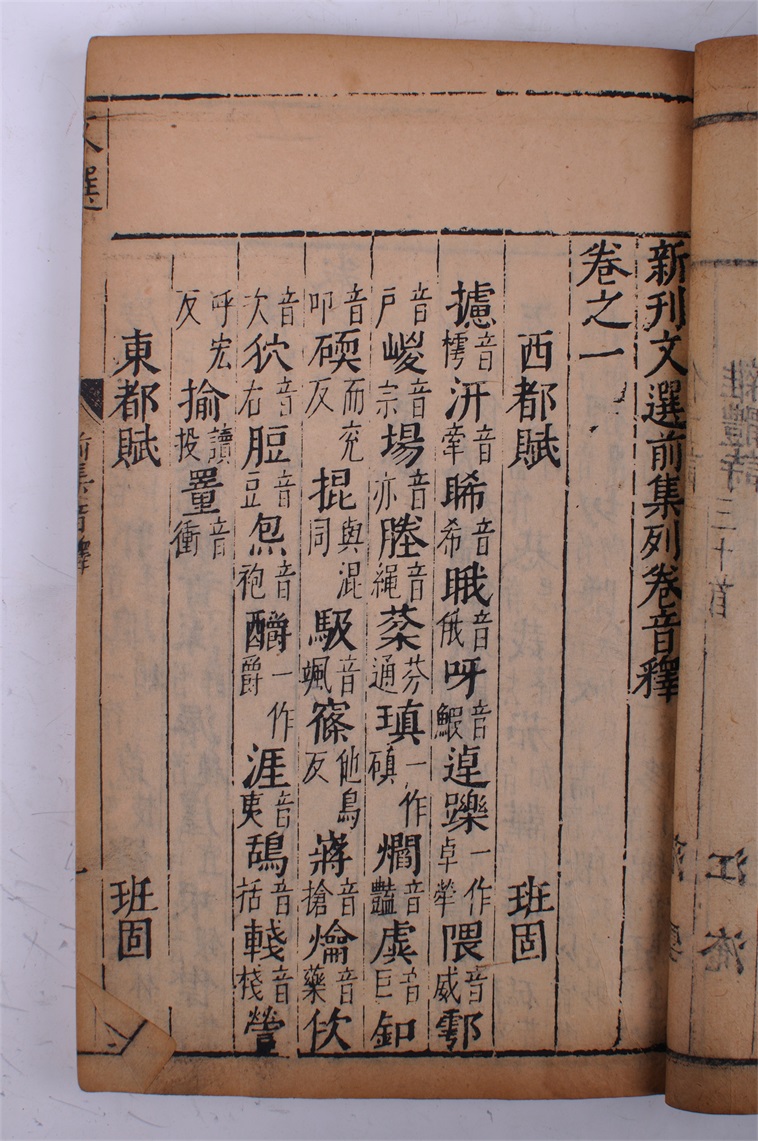 雜體詩三十首 江淹
新刊文選前集列卷音釋
卷之一
西都賦 班固
攄音樗汧音牽睎音希睋音俄呀音鰕逴躒一作卓犖隈音威鄠
音戶嵕音宗場音亦塍音繩棻芬通瑱一作磌爓音豔虡音巨釦
音叩碝而兖反掍與混同馺音颯篠他鳥反蔣音搶爚音藥佽
音次狖音右脰音豆炰音袍釂一作爵涯音夷鴰音括輚音棧謍
呼宏反揄讀投罿音衝
東都賦 班固
文選
前集音釋